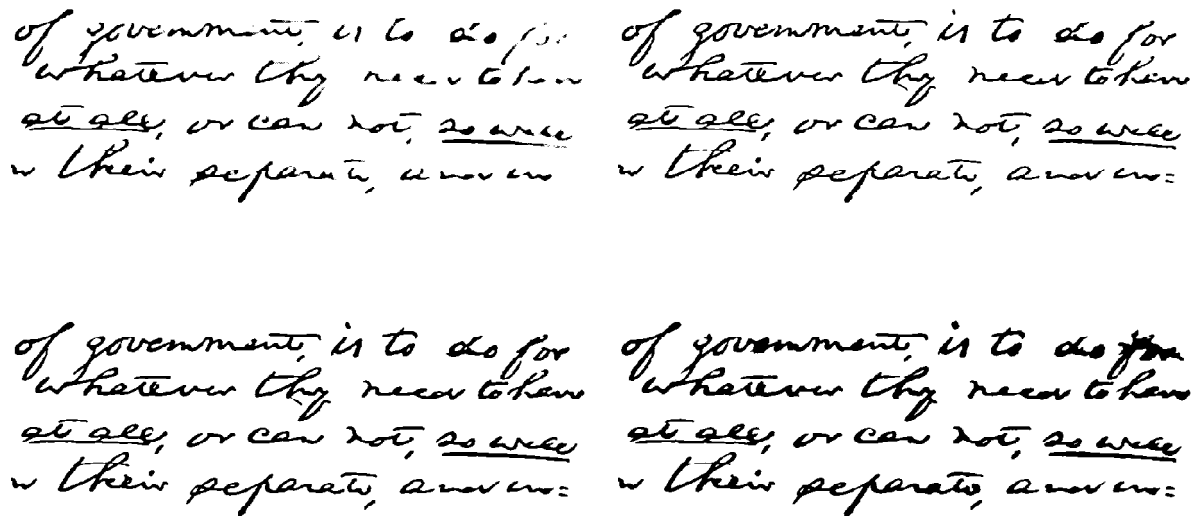 of government, is to do for
whatever they need to have
at all, or can not, so well
their separate, and in
of government, is to do for
whatever they need to have
at all, or can not, so well
their separate, and in=
of government, is to do for
whatever they need to have
at all, or can not, so well
their separate, and in=
of government, is to do for
whatever they need to have
at all, or can not, so well
their separate, and in=